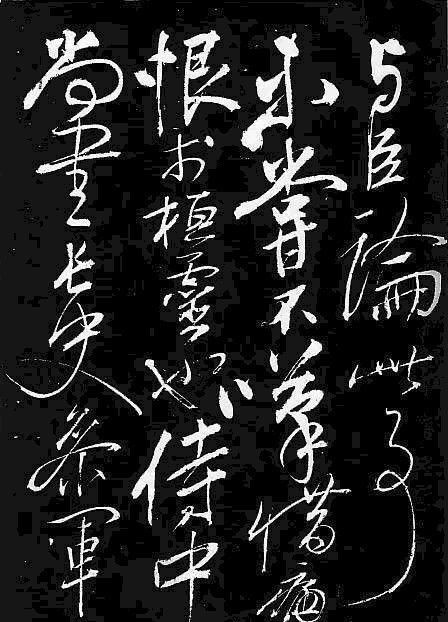 与臣論此事
未嘗不歎惜痛
恨於桓靈也侍中
尚書長史參軍